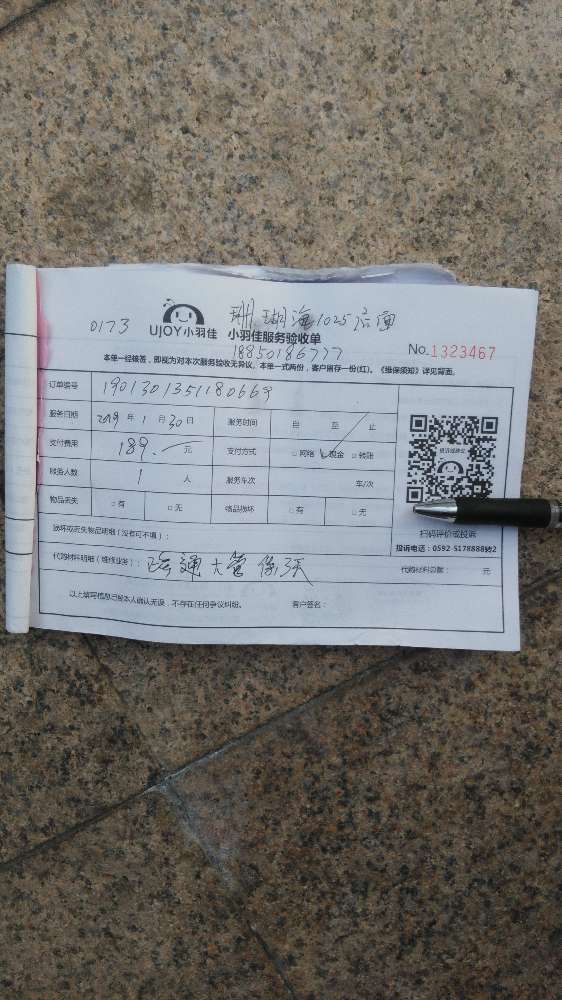 珊瑚海1025店面
0173 UJOY小羽佳 小羽佳服务验收单
18850186777 No.1323467
本单一经签署,即视为对本次服务验收无异议。本单一式两份,客户留存一份(红)。《维保须知》详见背面。
订单编号 190130135118066
服务日期 2019 年 1 月 30 日 服务时间 自 至 止
支付费用 189. 元 支付方式 □网络 ✓现金 □转账
服务人数 1 人 服务车次 车/次
物品丢失 □有 □无 物品损坏 □有 □无
扫码评价或投诉
损坏或丢失物品明细(没有可不填):
投诉电话:0592-5178888转2
代购材料明细(维修业务): 疏通大管保3天 代购材料总额: 元
以上填写信息已经本人确认无误,不存在任何争议纠纷。 客户签名: